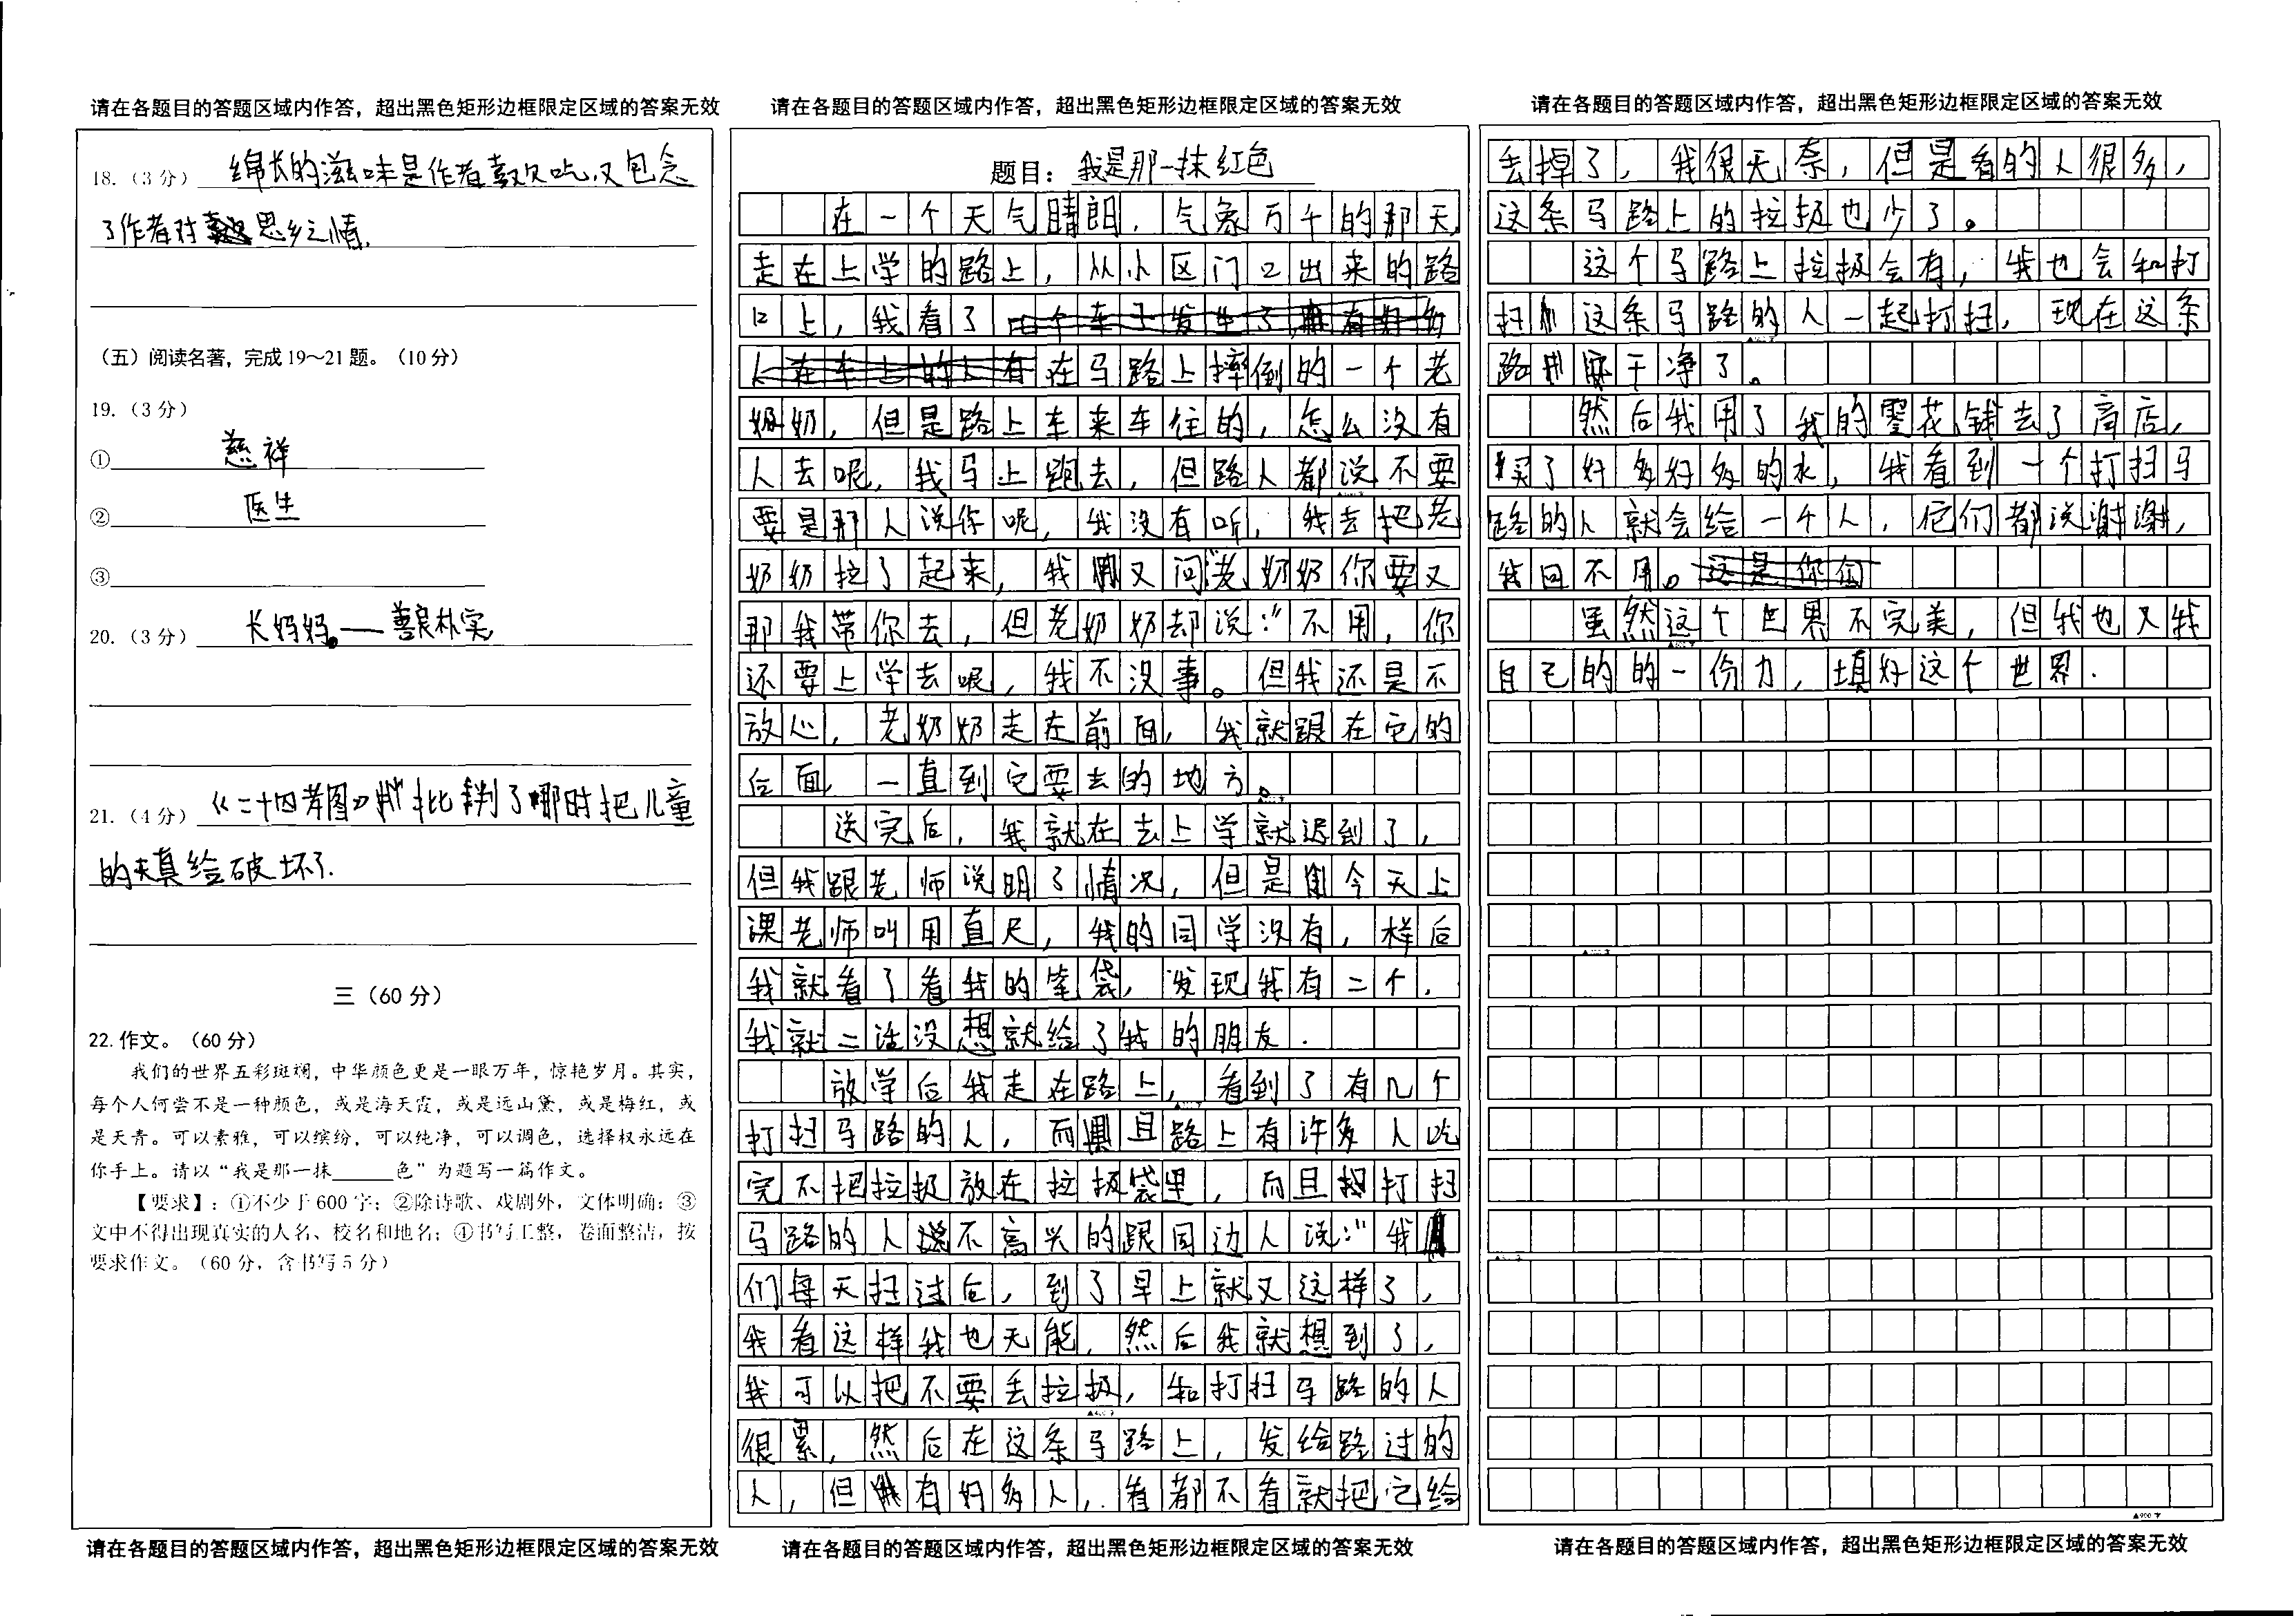 请在各题目的答题区域内作答，超出黑色矩形边框限定区域的答案无效
18.（3 分） 绵长的滋味是作者喜欢吃，又包念
了作者对思乡之情，
（五）阅读名著，完成19～21 题。（10 分）
19.（3 分）
① 慈祥
② 医生
③
20.（3 分） 长妈妈。—善良朴实
21.（4 分） 《二十四孝图》批判了哪时把儿童
的天真给破坏了.
三（60 分）
22.作文。（60 分）
我们的世界五彩斑斓，中华颜色更是一眼万年，惊艳岁月。其实，
每个人何尝不是一种颜色，或是海天霞，或是远山黛，或是梅红，或
是天青。可以素雅，可以缤纷，可以纯净，可以调色，选择权永远在
你手上。请以“我是那一抹______色”为题写一篇作文。
【要求】：①不少于 600 字；②除诗歌、戏剧外，文体明确；③
文中不得出现真实的人名、校名和地名；④书写工整，卷面整洁，按
要求作文。（60 分，含书写 5 分）
请在各题目的答题区域内作答，超出黑色矩形边框限定区域的答案无效
请在各题目的答题区域内作答，超出黑色矩形边框限定区域的答案无效
题目：我是那一抹红色
在一个天气睛朗，气象万千的那天，
走在上学的路上，从小区门口出来的路
口上，我看了
在马路上摔倒的一个老
奶奶，但是路上车来车往的，怎么没有
人去呢，我马上跑去，但路人都说不要
要是那人说你呢，我没有听，我去把老
奶奶拉了起来，我又问老奶奶你要又
那我带你去，但老奶奶却说：“不用，你
还要上学去呢，我不没事。但我还是不
放心，老奶奶走在前面，我就跟在它的
后面，一直到它要去的地方。
送完后，我就在去上学就迟到了，
但我跟老师说明了情况，但是今天上
课老师叫用直尺，我的同学没有，样后
我就看了看我的笔袋，发现我有二个，
我就二话没想就给了我的朋友.
放学后我走在路上，看到了有几个
打扫马路的人，而且路上有许多人吃
完不把拉扱放在拉扱袋里，而且打扫
马路的人不高兴的跟同边人说：“我
们每天扫过后，到了早上就又这样了，
我看这样我也无能，然后我就想到了，
我可以把不要丢拉扱，和打扫马路的人
很累，然后在这条马路上，发给路过的
人，但有好多人，看都不看就把它给
请在各题目的答题区域内作答，超出黑色矩形边框限定区域的答案无效
请在各题目的答题区域内作答，超出黑色矩形边框限定区域的答案无效
丢掉了，我很无奈，但是看的人很多，
这条马路上的拉扱也少了。
这个马路上拉扱会有，我也会和打
扫这条马路的人一起打扫，现在这条
路干净了。
然后我用了我的零花钱去了商店，
买了好多好多的水，我看到一个打扫马
路的人就会给一个人，佗们都说谢谢，
我回不用。
虽然这个世界不完美，但我也又我
自己的的一份力，填好这个世界.
▲900 字
请在各题目的答题区域内作答，超出黑色矩形边框限定区域的答案无效